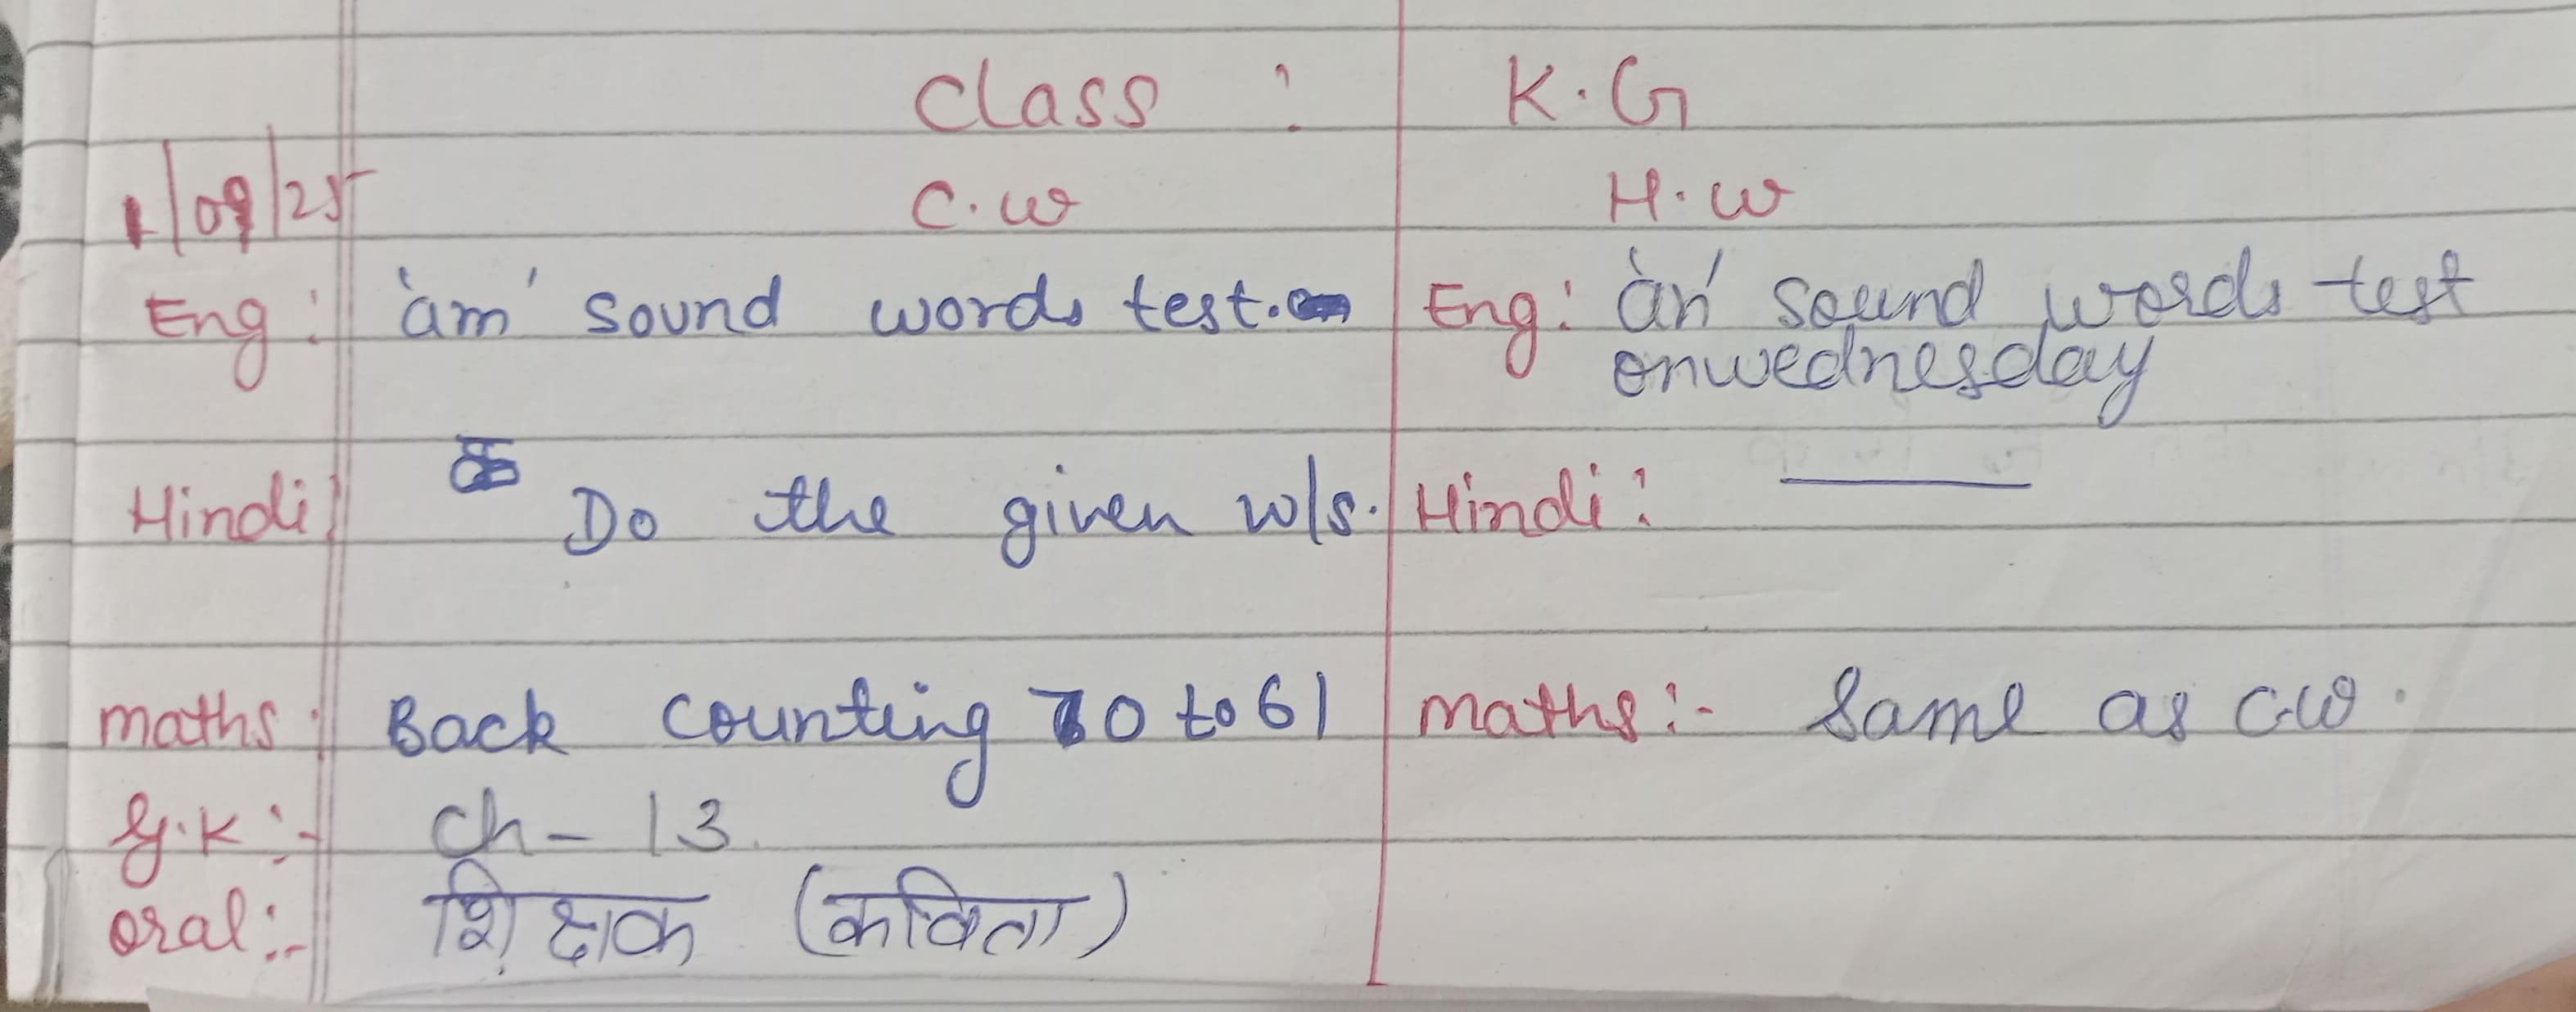 Class : K.G
1/09/25 C.W H.W
Eng: 'am' sound words test. Eng: 'an' sound words test
onwednesday
Hindi: Do the given w/s. Hindi: ———
maths: Back counting 70 to 61 maths:- Same as C.W.
G.K:- Ch- 13.
oral:- शिक्षक (कविता)